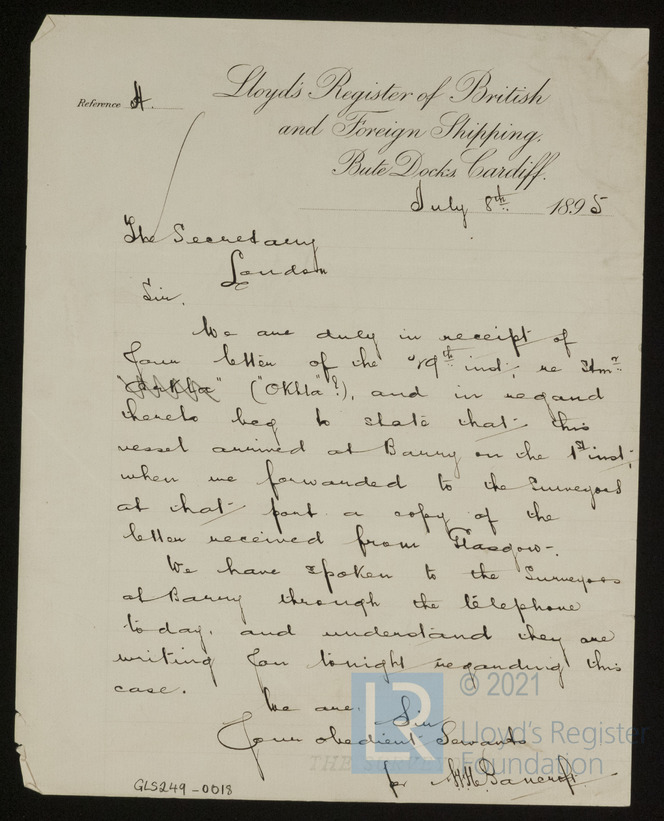 Reference H.
Lloyd's Register of British
and Foreign Shipping.
Bute Docks Cardiff.
July 8th 1895
The Secretary
London
Sir,
We are duly in receipt of
Your letter of the inst, re Stmr
("Okhla"?), and in regard
thereto beg to state that this
vessel arrived at Barry on the 1st inst,
when we forwarded to the Surveyors
at that port a copy of the
letter received from Glasgow.
We have spoken to the Surveyors
at Barry through the telephone
today, and understand they are
writing You tonight regarding this
case.
We are, Sir
Your obedient Servants
for H.H. Bancroft
THE SURVEY
GLS249-0018
LR
© 2021
Lloyd's Register
Foundation